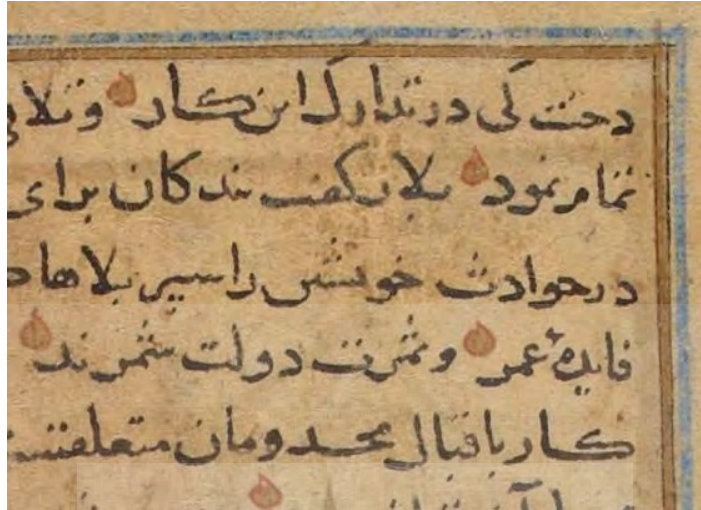 دخت کی در تدارک این کار و تلافی
تمام نمود بلار کفت بندکان برای
در حوادث خویشتن را سپر بلاها
فایدهٔ عمر و ثمرت دولت شمرند
کار باقبال مخدومان متعلقست